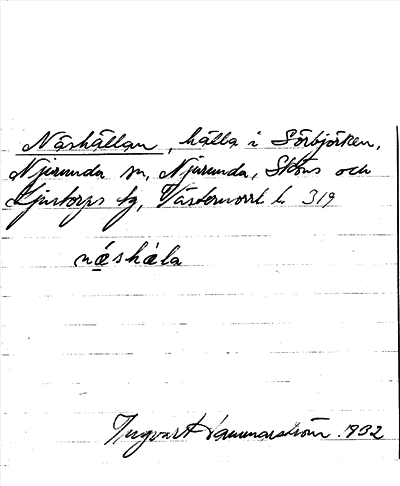 Näshällan, hälla i Sörbjörken,
Njurunda sn, Njurunda, Sköns och
Ljustorps tg, Västernorrl. l. 319
näshäla
Ingvart Hammarström 1932